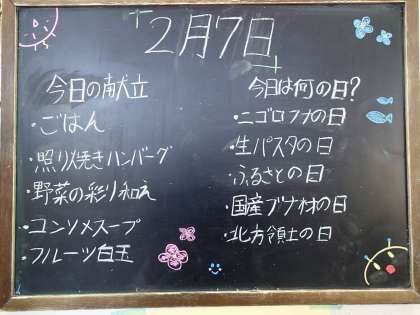 2月7日
今日の献立
・ごはん
・照り焼きハンバーグ
・野菜の彩り和え
・コンソメスープ
・フルーツ白玉
今日は何の日?
・ニゴロブナの日
・生パスタの日
・ふるさとの日
・国産ブナ材の日
・北方領土の日